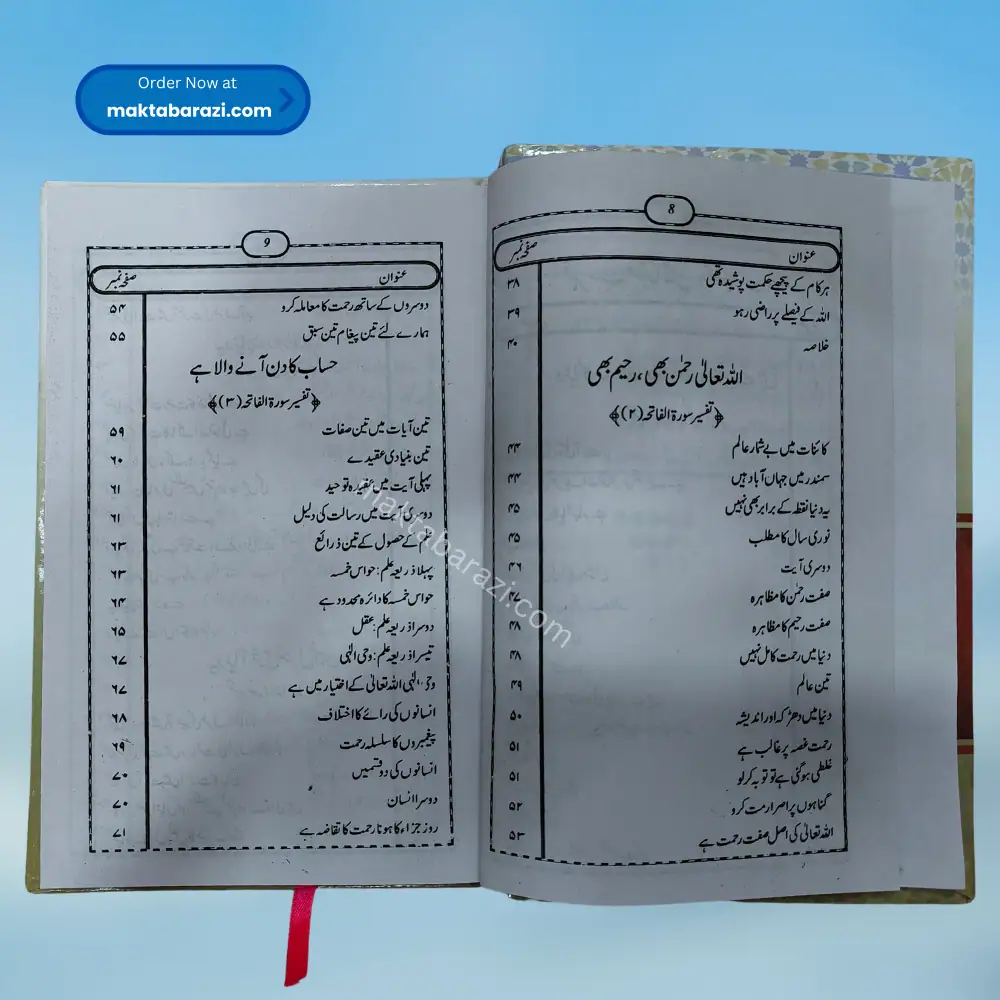 Order Now at
maktabarazi.com
8
عنوان صفحہ نمبر
ہر کام کے پیچھے حکمت پوشیدہ تھی ۳۸
اللہ کے فیصلے پر راضی رہو ۳۹
خلاصہ ۴۰
اللہ تعالیٰ رحمٰن بھی، رحیم بھی
﴿تفسیر سورۃ الفاتحہ (۲)﴾
کائنات میں بے شمار عالم ۴۴
سمندر میں جہاں آباد ہیں ۴۴
یہ دنیا نقطہ کے برابر بھی نہیں ۴۵
نوری سال کا مطلب ۴۵
دوسری آیت ۴۶
صفت رحمٰن کا مظاہرہ ۴۷
صفت رحیم کا مظاہرہ ۴۸
دنیا میں رحمت کامل نہیں ۴۸
تین عالم ۴۹
دنیا میں دھڑکہ اور اندیشہ ۵۰
رحمت غصہ پر غالب ہے ۵۱
غلطی ہو گئی ہے تو توبہ کر لو ۵۱
گناہوں پر اصرار مت کرو ۵۲
اللہ تعالیٰ کی اصل صفت رحمت ہے ۵۳
9
عنوان صفحہ نمبر
دوسروں کے ساتھ رحمت کا معاملہ کرو ۵۴
ہمارے لئے تین پیغام تین سبق ۵۵
حساب کا دن آنے والا ہے
﴿تفسیر سورۃ الفاتحہ (۳)﴾
تین آیات میں تین صفات ۵۹
تین بنیادی عقیدے ۶۰
پہلی آیت میں عقیدہ توحید ۶۱
دوسری آیت میں رسالت کی دلیل ۶۱
علم کے حصول کے تین ذرائع ۶۳
پہلا ذریعہ علم: حواس خمسہ ۶۳
حواس خمسہ کا دائرہ محدود ہے ۶۴
دوسرا ذریعہ علم: عقل ۶۵
تیسرا ذریعہ علم: وحی الٰہی ۶۷
وحی الٰہی اللہ تعالیٰ کے اختیار میں ہے ۶۷
انسانوں کی رائے کا اختلاف ۶۸
پیغمبروں کا سلسلہ رحمت ۶۹
انسانوں کی دو قسمیں ۷۰
دوسرا انسان ۷۰
روز جزاء کا ہونا رحمت کا تقاضہ ہے ۷۱
maktabarazi.com